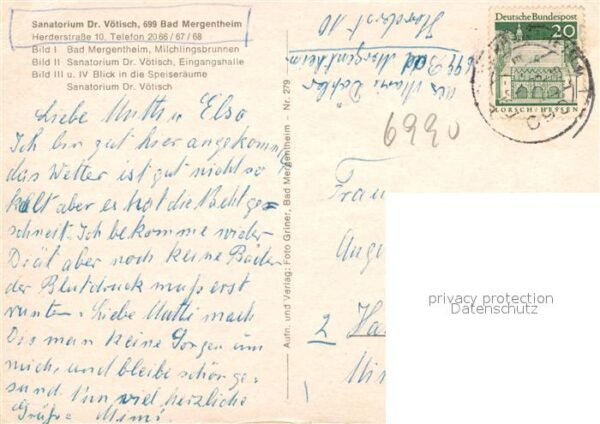 Sanatorium Dr. Vötisch, 699 Bad Mergentheim
Herderstraße 10, Telefon 2066/67/68
Bild I Bad Mergentheim, Milchlingsbrunnen
Bild II Sanatorium Dr. Vötisch, Eingangshalle
Bild III u. IV Blick in die Speiseräume
Sanatorium Dr. Vötisch
Liebe Mutti u Elsa
Ich bin gut hier angekommen
das Wetter ist gut nicht so
kalt aber es hat die Nacht ge-
schneit. Ich bekomme wieder
Diät aber noch keine Bäder
der Blutdruck muß erst
runter. Liebe Mutti mach
Dir man keine Sorgen um
mich, und bleibe schön ge-
sund. Nun viel herzliche
Grüße Mimi
Aufn. und Verlag: Foto Griner, Bad Mergentheim - Nr. 279
699 Bad Mergentheim
6990
Deutsche Bundespost
20
LORSCH/HESSEN
Frau
2 Ha
privacy protection
Datenschutz